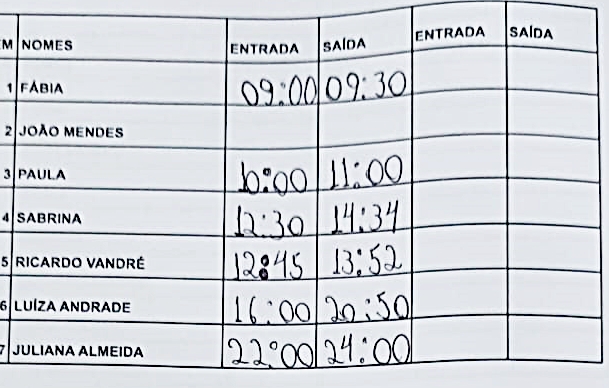 M NOMES ENTRADA SAÍDA ENTRADA SAÍDA
1 FÁBIA 09:00 09:30
2 JOÃO MENDES
3 PAULA 10:00 11:00
4 SABRINA 12:30 14:34
5 RICARDO VANDRÉ 12:45 13:52
6 LUÍZA ANDRADE 16:00 20:50
7 JULIANA ALMEIDA 22:00 24:00